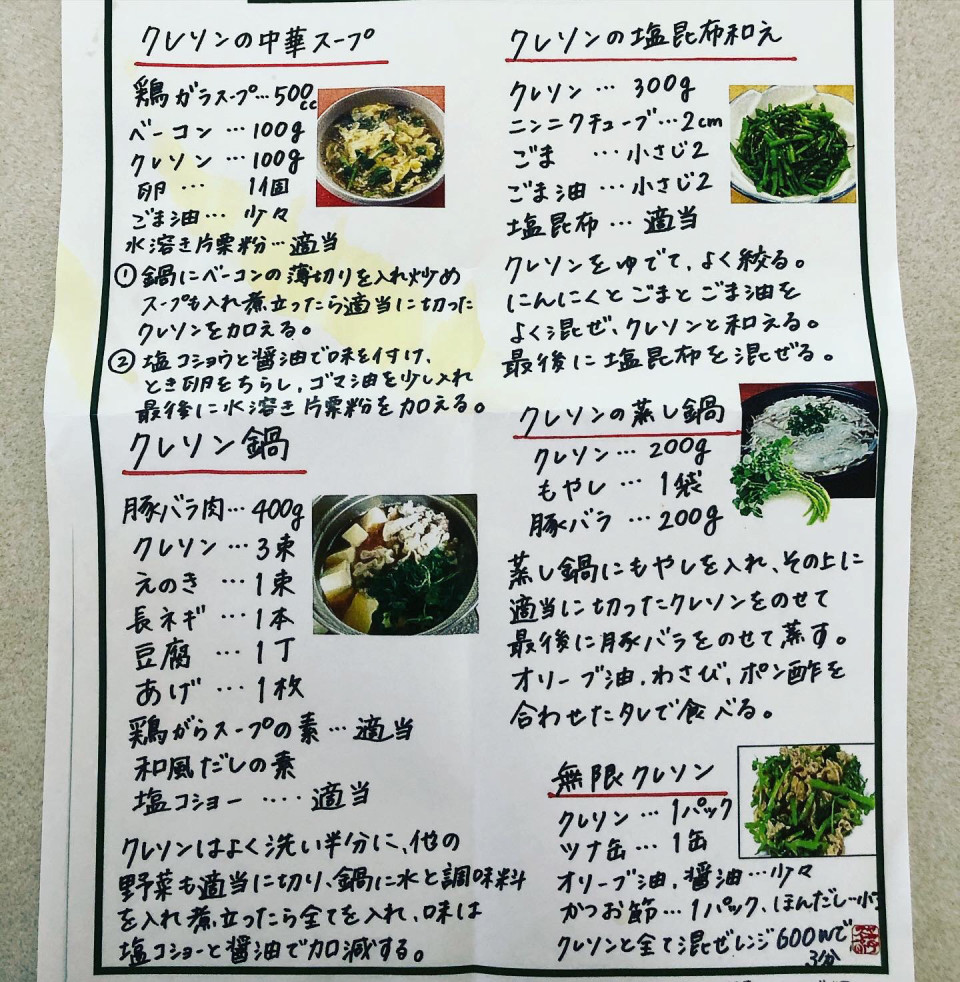 クレソンの中華スープ
鶏ガラスープ…500cc
ベーコン…100g
クレソン…100g
卵… 1個
ごま油…少々
水溶き片栗粉…適当
① 鍋にベーコンの薄切りを入れ炒め
スープも入れ煮立ったら適当に切った
クレソンを加える。
② 塩コショウと醤油で味を付け、
とき卵をちらし、ゴマ油を少し入れ
最後に水溶き片栗粉を加える。
クレソン鍋
豚バラ肉…400g
クレソン…3束
えのき…1束
長ネギ…1本
豆腐…1丁
あげ…1枚
鶏がらスープの素…適当
和風だしの素
塩コショー‥‥適当
クレソンはよく洗い半分に、他の
野菜も適当に切り、鍋に水と調味料
を入れ煮立ったら全てを入れ、味は
塩コショーと醤油で加減する。
クレソンの塩昆布和え
クレソン…300g
ニンニクチューブ…2cm
ごま…小さじ2
ごま油…小さじ2
塩昆布…適当
クレソンをゆでて、よく絞る。
にんにくとごまとごま油を
よく混ぜ、クレソンと和える。
最後に塩昆布を混ぜる。
クレソンの蒸し鍋
クレソン…200g
もやし…1袋
豚バラ…200g
蒸し鍋にもやしを入れ、その上に
適当に切ったクレソンをのせて
最後に豚バラをのせて蒸す。
オリーブ油、わさび、ポン酢を
合わせたタレで食べる。
無限クレソン
クレソン…1パック
ツナ缶…1缶
オリーブ油、醤油…少々
かつお節…1パック、ほんだし…小
クレソンと全て混ぜレンジ600wで
3分